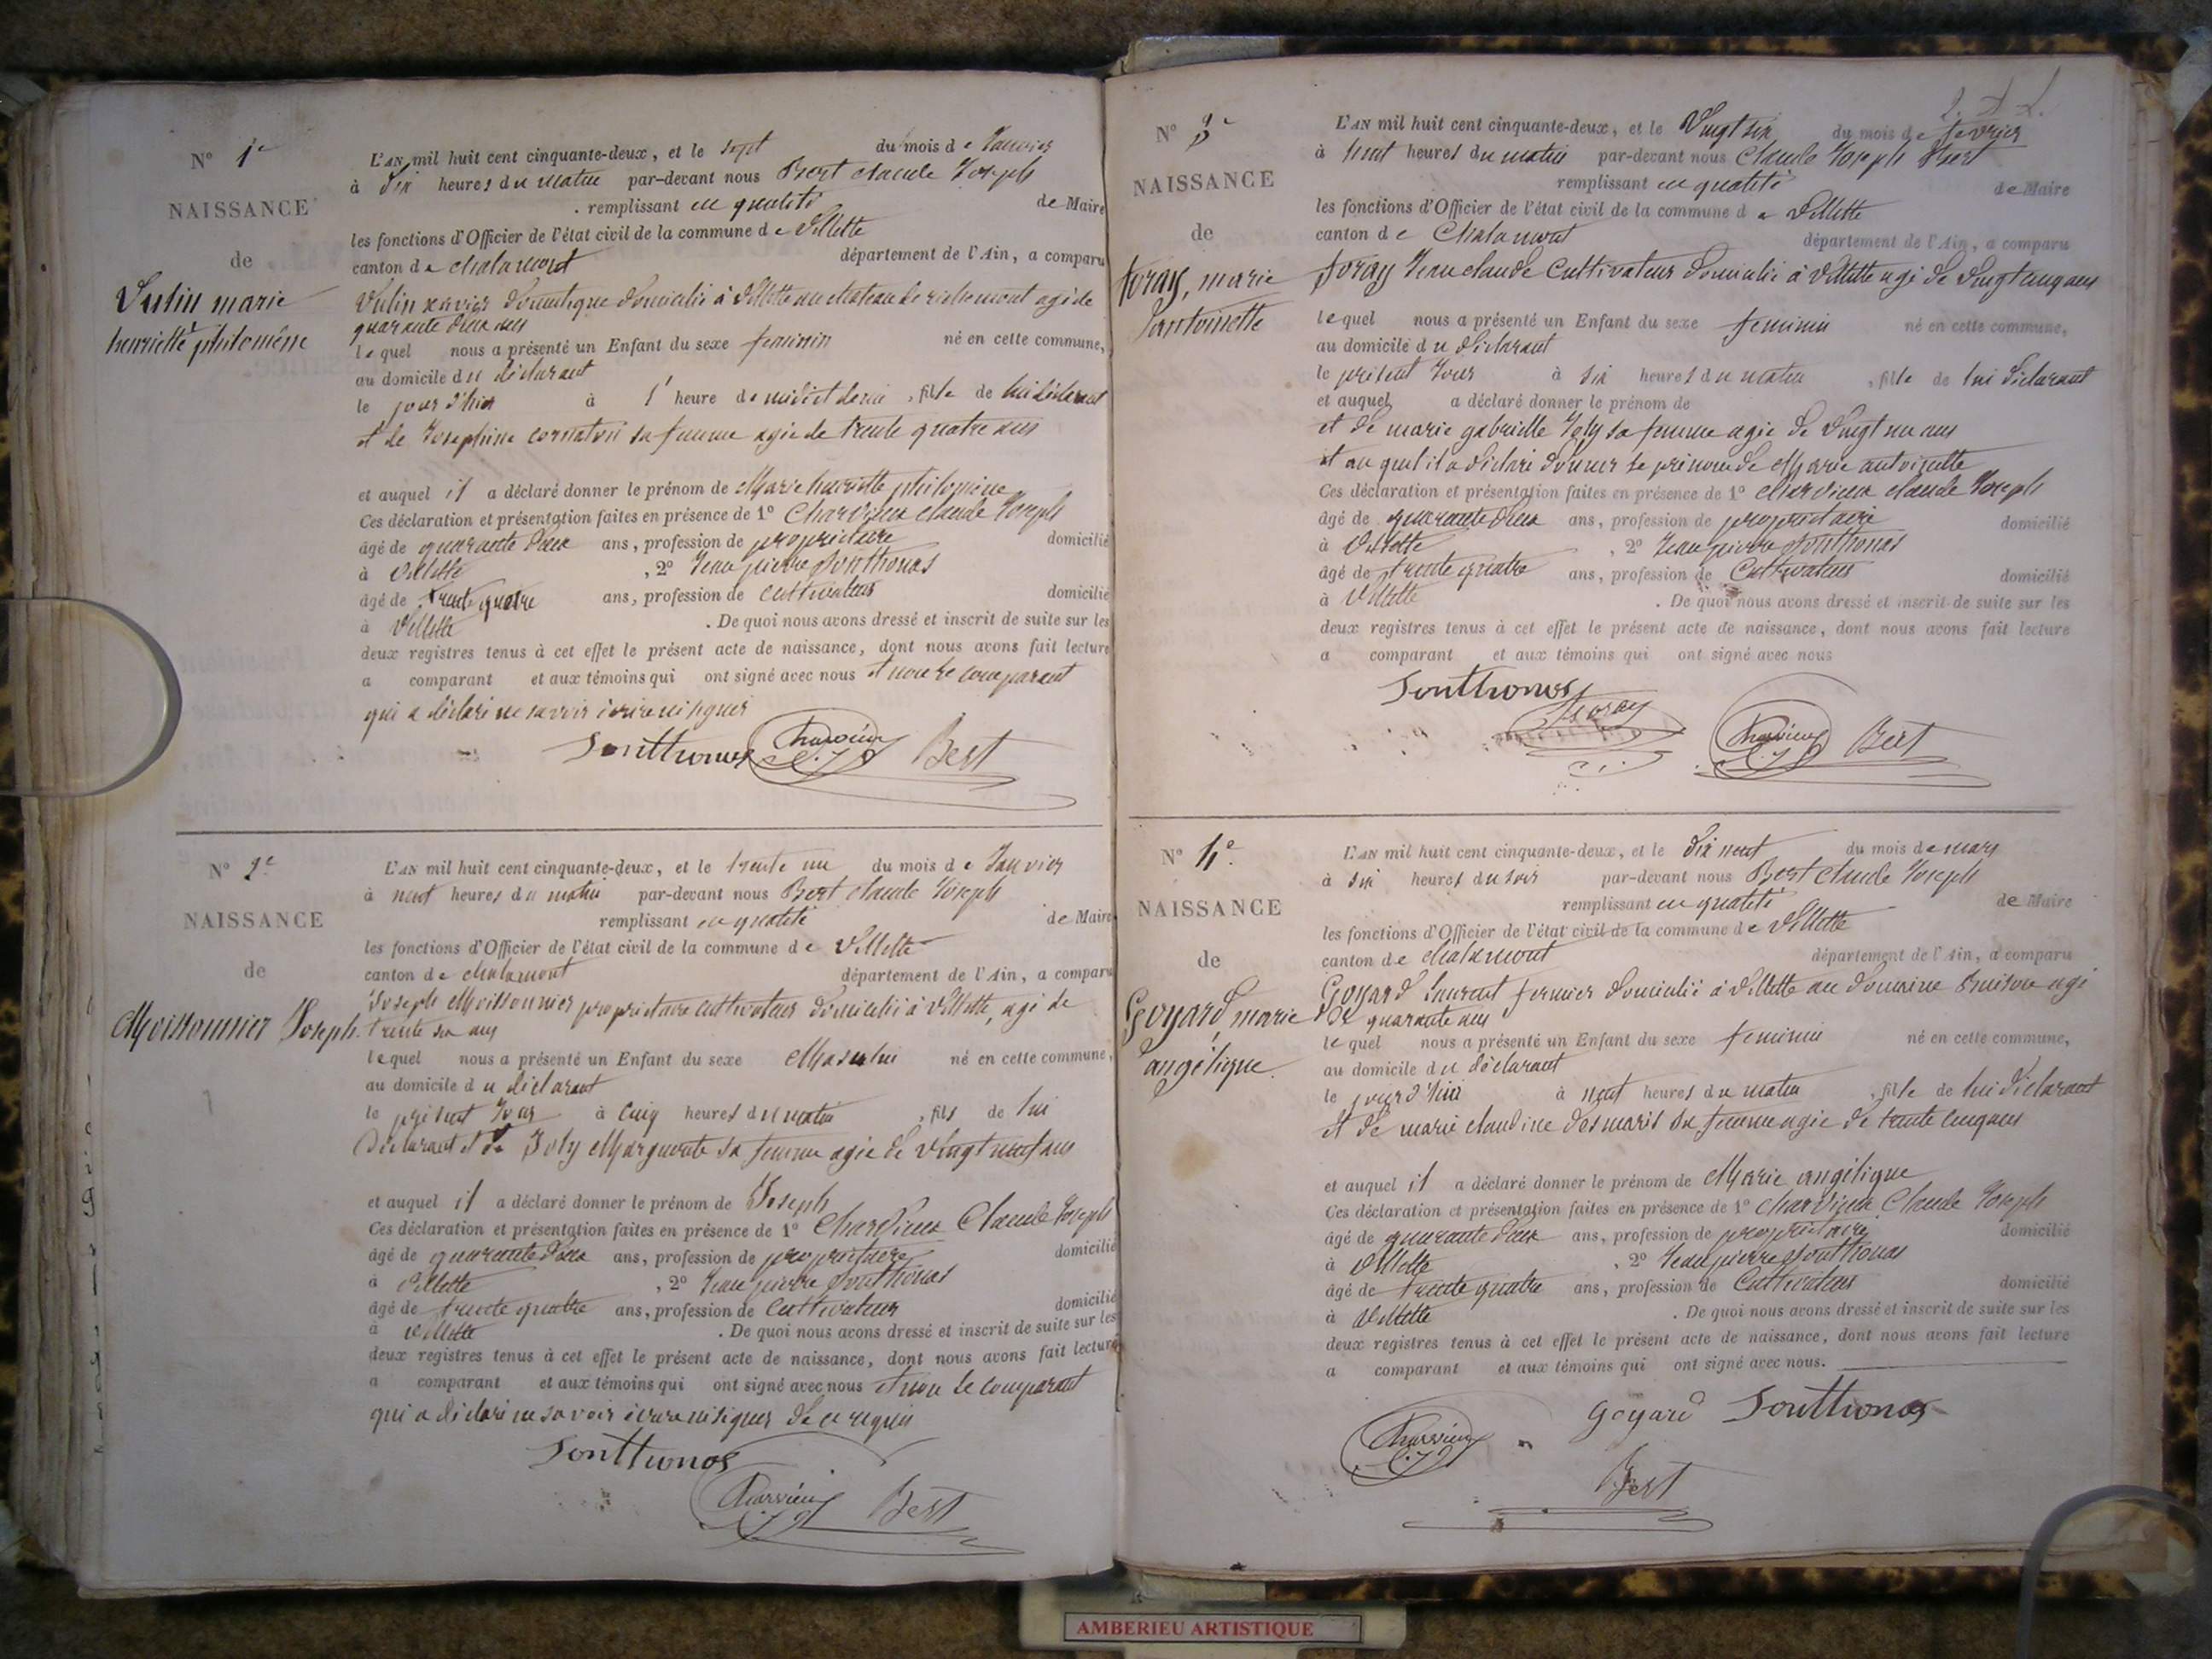 N° 1e
NAISSANCE
de
Vulin marie
henriette philomène
L'AN mil huit cent cinquante-deux, et le sept du mois de Janvier
à dix heures du matin par-devant nous Bert claude Joseph
remplissant en qualité de Maire
les fonctions d'Officier de l'état civil de la commune de Villette
canton de chalamont département de l'Ain, a comparu
Vulin xavier domestique domicilié à Villette au chateau de richemont agé de
quarante deux ans
lequel nous a présenté un Enfant du sexe feminin né en cette commune,
au domicile du déclarant
le jour d'hier à 1' heure de midi et demie, fille de lui déclarant
et de Josephine cornaton sa femme agée de trente quatre ans
et auquel il a déclaré donner le prénom de Marie henriette philomène
Ces déclaration et présentation faites en présence de 1° Charvieux claude Joseph
âgé de quarante deux ans, profession de propriétaire domicilié
à Villette, 2° Jean pierre Jonthonas
âgé de trente quatre ans, profession de cultivateur domicilié
à Villette. De quoi nous avons dressé et inscrit de suite sur les
deux registres tenus à cet effet le présent acte de naissance, dont nous avons fait lecture
a comparant et aux témoins qui ont signé avec nous et non le comparant
qui a déclaré ne savoir écrire ni signer
Jonthonas Charvieux C. J. Bert
N° 2e
NAISSANCE
de
Moissonnier Joseph.
L'AN mil huit cent cinquante-deux, et le trente un du mois de Janvier
à neuf heures du matin par-devant nous Bert claude Joseph
remplissant en qualité de Maire
les fonctions d'Officier de l'état civil de la commune de Villette
canton de chalamont département de l'Ain, a comparu
Joseph Moissonnier propriétaire cultivateur domicilié à Villette, agé de
trente six ans
lequel nous a présenté un Enfant du sexe Masculin né en cette commune,
au domicile du déclarant
le présent Jour à cinq heures du matin, fils de lui
déclarant et de Joly Marguerite sa femme agée de vingt neuf ans
et auquel il a déclaré donner le prénom de Joseph
Ces déclaration et présentation faites en présence de 1° Charvieux Claude Joseph
âgé de quarante deux ans, profession de propriétaire domicilié
à Villette, 2° Jean pierre Jonthonas
âgé de trente quatre ans, profession de Cultivateur domicilié
à Villette. De quoi nous avons dressé et inscrit de suite sur les
deux registres tenus à cet effet le présent acte de naissance, dont nous avons fait lecture
a comparant et aux témoins qui ont signé avec nous et non le comparant
qui a déclaré ne savoir écrire ni signer de ce requis
Jonthonas
Charvieux C. J. Bert
N° 3e
NAISSANCE
de
foray, marie
antoinette
L'AN mil huit cent cinquante-deux, et le Vingt six du mois de fevrier
à huit heures du matin par-devant nous Claude Joseph Bert
remplissant en qualité de Maire
les fonctions d'Officier de l'état civil de la commune de Villette
canton de Chalamont département de l'Ain, a comparu
foray Jean claude Cultivateur domicilié à Villette agé de vingt cinq ans
lequel nous a présenté un Enfant du sexe feminin né en cette commune,
au domicile du déclarant
le présent Jour à six heures du matin, fille de lui déclarant
et auquel a déclaré donner le prénom de
et de marie gabrielle Joly sa femme agée de vingt un ans
et au quel il a déclaré donner le prénom de Marie antoinette
Ces déclaration et présentation faites en présence de 1° Charvieux claude Joseph
âgé de quarante deux ans, profession de propriétaire domicilié
à Villette, 2° Jean pierre Jonthonas
âgé de trente quatre ans, profession de Cultivateur domicilié
à Villette. De quoi nous avons dressé et inscrit de suite sur les
deux registres tenus à cet effet le présent acte de naissance, dont nous avons fait lecture
a comparant et aux témoins qui ont signé avec nous
Jonthonas
foray Charvieux C. J. Bert
N° 4e
NAISSANCE
de
Goyard marie
angélique.
L'AN mil huit cent cinquante-deux, et le dix neuf du mois de mars
à six heures du soir par-devant nous Bert claude Joseph
remplissant en qualité de Maire
les fonctions d'Officier de l'état civil de la commune de Villette
canton de chalamont département de l'Ain, a comparu
Goyard Laurent fermier domicilié à Villette au domaine agé
de quarante ans
lequel nous a présenté un Enfant du sexe feminin né en cette commune,
au domicile du déclarant
le jour d'hier à neuf heures du matin, fille de lui déclarant
et de marie claudine desmaris sa femme agée de trente cinq ans
et auquel il a déclaré donner le prénom de Marie angélique
Ces déclaration et présentation faites en présence de 1° Charvieux Claude Joseph
âgé de quarante deux ans, profession de propriétaire domicilié
à Villette, 2° Jean pierre Jonthonas
âgé de trente quatre ans, profession de Cultivateur domicilié
à Villette. De quoi nous avons dressé et inscrit de suite sur les
deux registres tenus à cet effet le présent acte de naissance, dont nous avons fait lecture
a comparant et aux témoins qui ont signé avec nous.
Goyard Jonthonas
Charvieux C. J.
Bert
AMBERIEU ARTISTIQUE